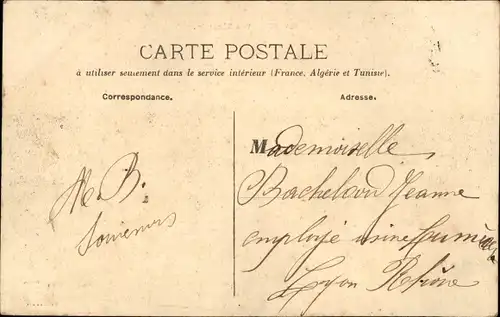 CARTE POSTALE
à utiliser seulement dans le service intérieur (France, Algérie et Tunisie).
Correspondance.
Adresse.
Mademoiselle
Jeanne
employé usine
Lyon Rhône
B.
Souvenirs